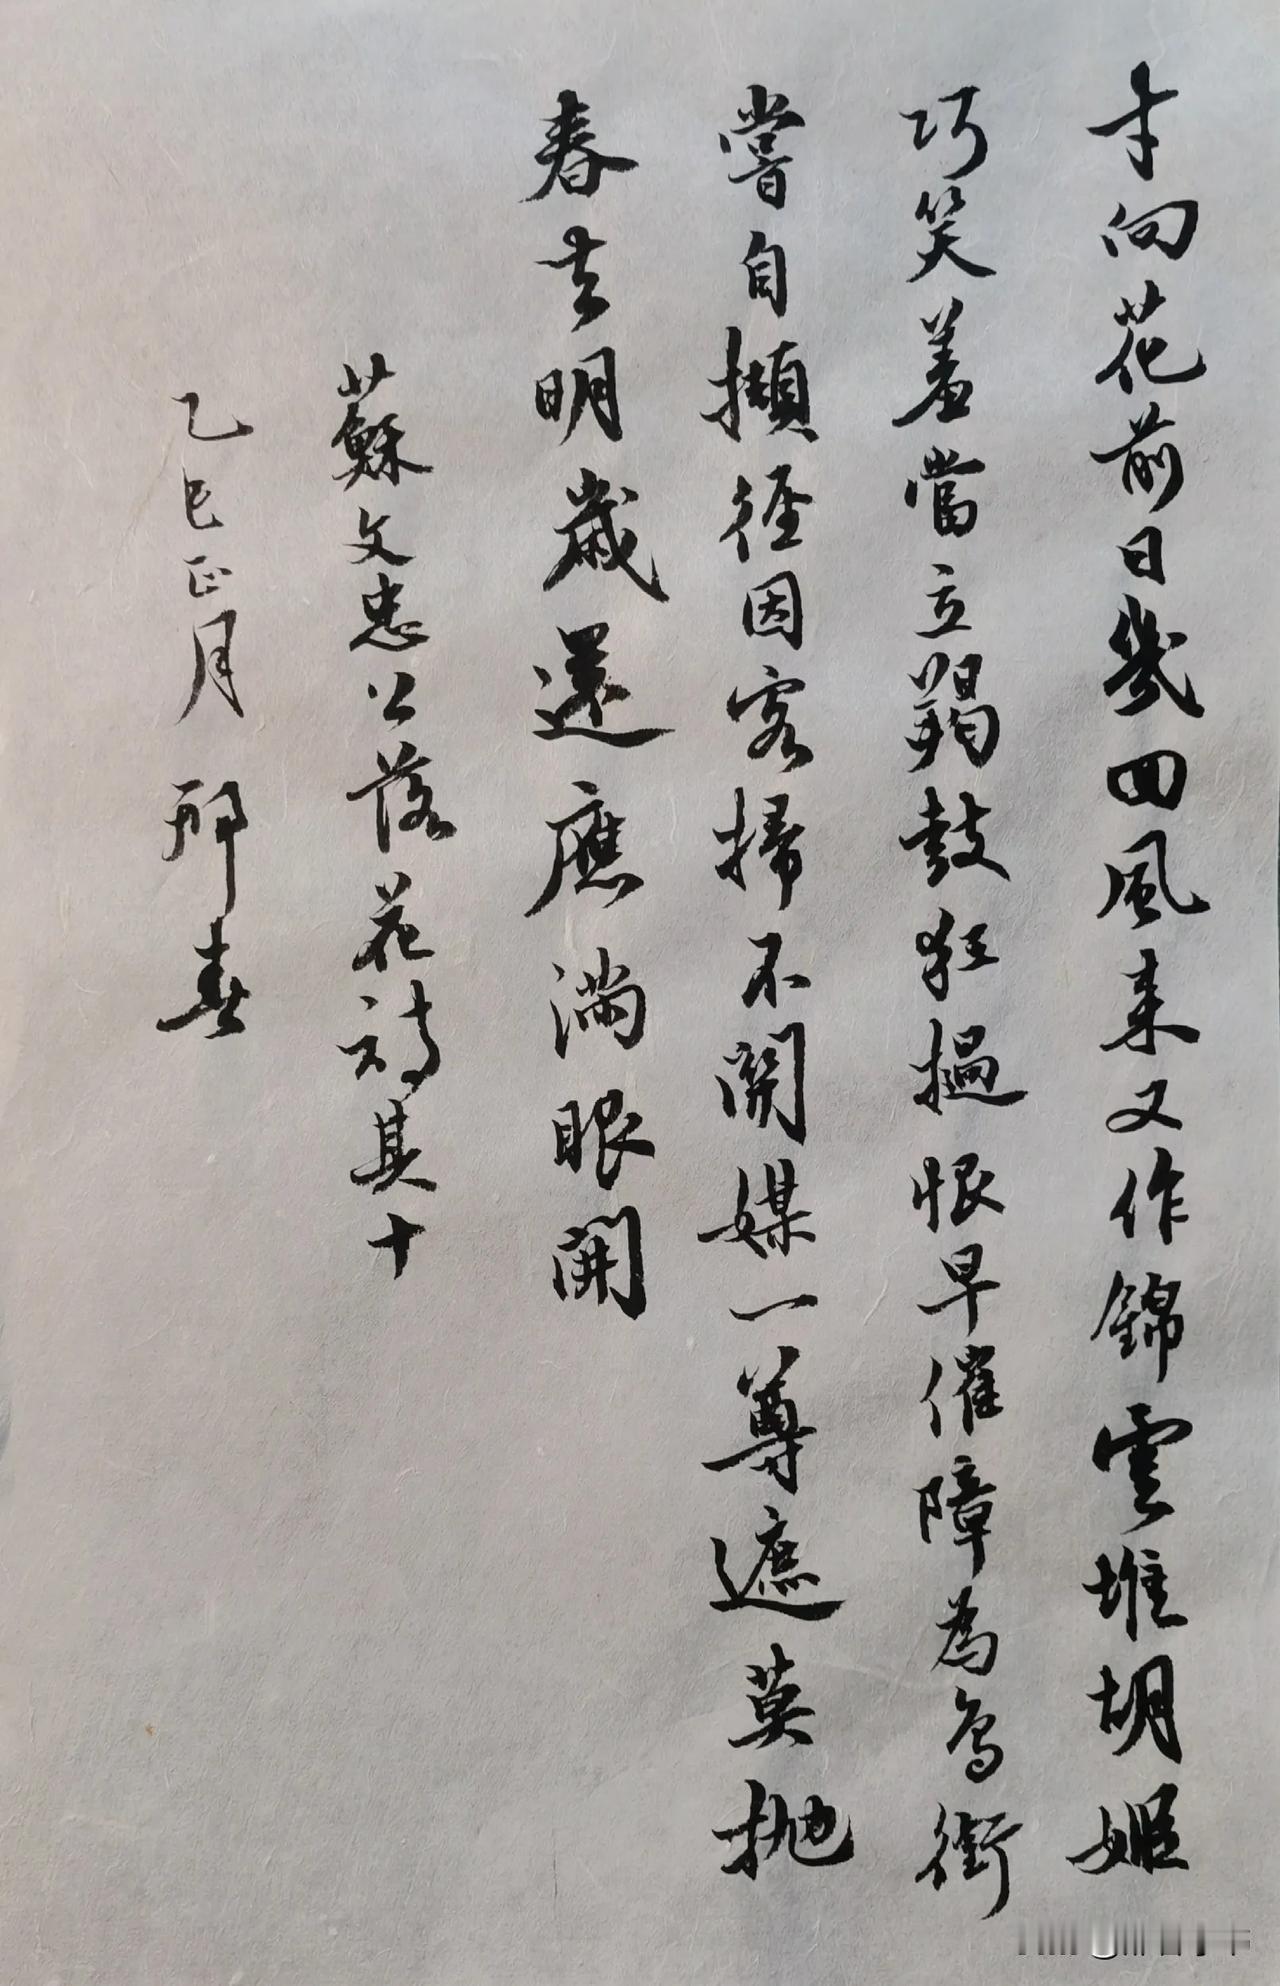 才向花前日幾回風来又作錦雲堆胡姬
巧笑羞當立羯鼓狂撾恨早催障為鳥銜
嘗自擷徑因客掃不關媒一尊遮莫拋
春去明歲還應滿眼開
蘇文忠公落花詩其十
乙巳正月邢春